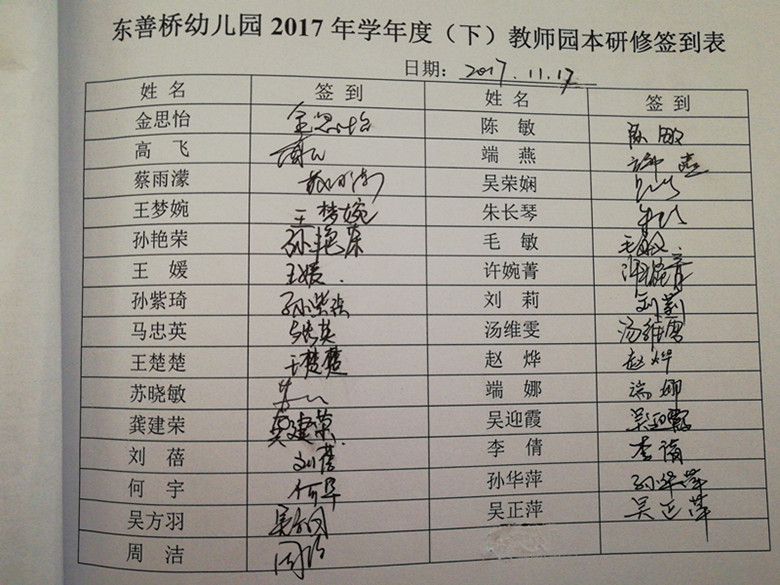 东善桥幼儿园 2017 年学年度（下）教师园本研修签到表
日期：2017.11.17
姓 名 签 到 姓 名 签 到
金思怡 金思怡 陈 敏 陈敏
高 飞 端 燕 端燕
蔡雨濛 吴荣娴
王梦婉 王梦婉 朱长琴
孙艳荣 孙艳荣 毛 敏 毛敏
王 媛 王媛 许婉菁 许婉菁
孙紫琦 孙紫琦 刘 莉 刘莉
马忠英 汤维雯 汤维雯
王楚楚 王楚楚 赵 烨 赵烨
苏晓敏 端 娜 端娜
龚建荣 龚建荣 吴迎霞 吴迎霞
刘 蓓 刘蓓 李 倩 李倩
何 宇 孙华萍 孙华萍
吴方羽 吴正萍 吴正萍
周 洁 周洁